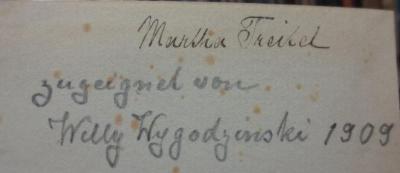 Martha Treitel
zugeeignet von
Willy Wygodzinski 1909